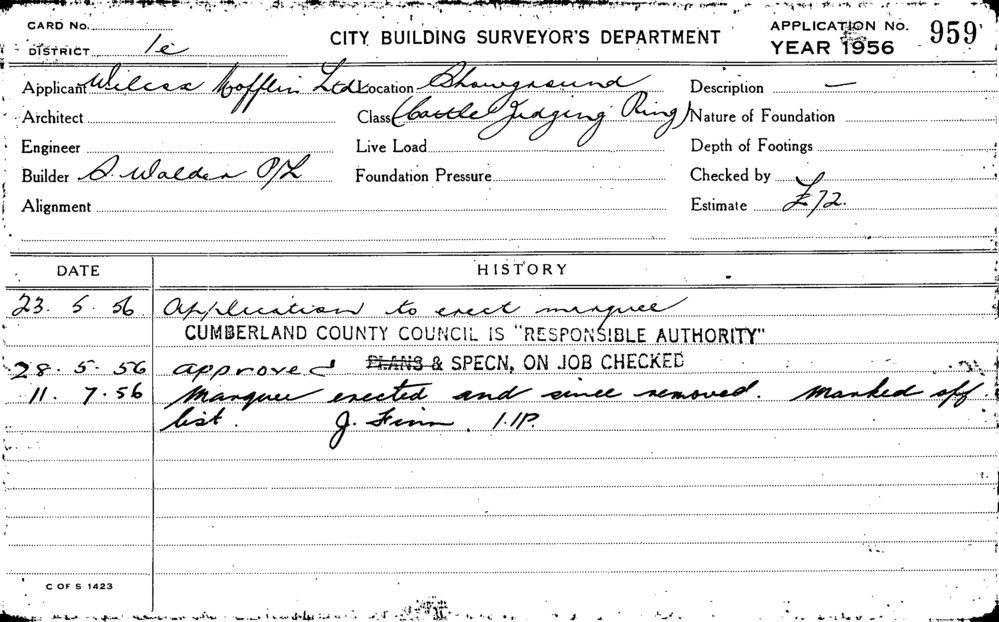 CARD No.
DISTRICT 1e
CITY BUILDING SURVEYOR'S DEPARTMENT
APPLICATION No. 959
YEAR 1956
Applicant Wilcox Mofflin Ltd Location Showground Description —
Architect Class (Cattle Judging Ring) Nature of Foundation
Engineer Live Load Depth of Footings
Builder S. Walder P/L Foundation Pressure Checked by
Alignment Estimate £72.
DATE HISTORY
23. 5. 56. Application to erect marquee
CUMBERLAND COUNTY COUNCIL IS "RESPONSIBLE AUTHORITY"
28. 5. 56 approved PLANS & SPECN, ON JOB CHECKED
11. 7. 56 Marquee erected and since removed. Marked off
list. J. Finn.
C OF S 1423